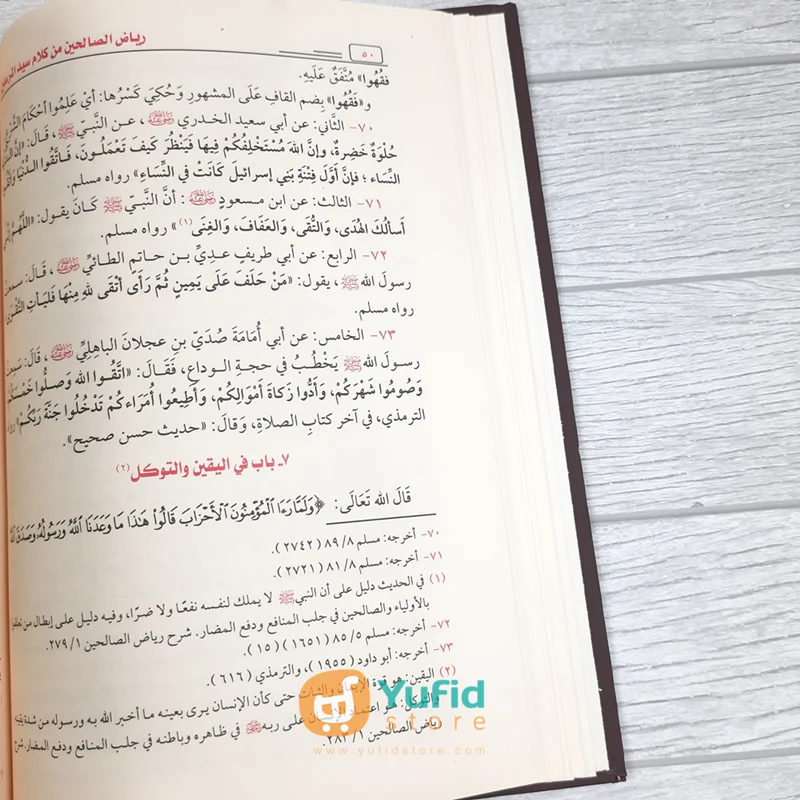 ٥٠
رياض الصالحين من كلام سيد
فقُهُوا» مُتَّفَقٌ عَلَيهِ.
و«فَقُهُوا» بضم القافِ عَلَى المشهورِ وَحُكِيَ كَسْرُها: أيْ عَلِمُوا أحْكَامَ
٧٠- الثَّاني: عن أبي سعيد الخدري رضي الله عنه، عن النَّبيّ ﷺ، قَالَ: «إنَّ
حُلْوَةٌ خَضِرةٌ، وإنَّ اللهَ مُسْتَخْلِفُكُمْ فِيهَا فَيَنْظُرُ كَيفَ تَعْمَلُونَ، فَاتَّقُوا الدُّنْيَا
النِّساء؛ فإنَّ أوَّلَ فِتْنَةِ بَنِي إسرائيلَ كَانَتْ في النِّسَاءِ» رواه مسلم.
٧١- الثالث: عن ابن مسعودٍ رضي الله عنه: أنَّ النَّبيّ ﷺ كَانَ يقول: «اللَّهُمَّ
أَسألُكَ الهُدَى، والتُّقَى، والعَفَافَ، والغِنَى (١)» رواه مسلم.
٧٢- الرابع: عن أبي طريفٍ عديِّ بن حاتمٍ الطائيِّ رضي الله عنه، قَالَ:
رسولَ الله ﷺ، يقول: «مَنْ حَلَفَ عَلَى يَمِينٍ ثُمَّ رَأَى أتْقَى للهِ مِنْهَا فَليَأتِ
رواه مسلم.
٧٣- الخامس: عن أبي أُمَامَةَ صُدَيّ بنِ عجلانَ الباهِلِيِّ رضي الله عنه، قَالَ:
رسولَ الله ﷺ يَخْطُبُ في حجةِ الوداعِ، فَقَالَ: «اتَّقُوا الله وَصَلُّوا
وَصُومُوا شَهْرَكُمْ، وَأَدُّوا زَكَاةَ أَمْوَالِكُمْ، وَأَطِيعُوا أُمَرَاءَكُمْ تَدْخُلُوا جَنَّةَ رَبِّكُمْ»
الترمذي، في آخر كتابِ الصلاةِ، وَقالَ: «حديث حسن صحيح».
٧ـ باب في اليقين والتوكل (٢)
قَالَ الله تَعَالَى: ﴿وَلَمَّا رَءَا ٱلْمُؤْمِنُونَ ٱلْأَحْزَابَ قَالُوا۟ هَٰذَا مَا وَعَدَنَا ٱللَّهُ وَرَسُولُهُۥ وَصَدَقَ ٱللَّهُ
٧٠- أخرجه: مسلم ٨٩/٨ (٢٧٤٢).
٧١- أخرجه: مسلم ٨١/٨ (٢٧٢١).
(١) في الحديث دليل على أن النبي ﷺ لا يملك لنفسه نفعًا ولا ضرًا، وفيه دليل على إبطال من
بالأولياء والصالحين في جلب المنافع ودفع المضار. شرح رياض الصالحين ١/ ٢٧٩.
٧٢- أخرجه: مسلم ٨٥/٥ (١٦٥١) (١٥).
٧٣- أخرجه: أبو داود (١٩٥٥)، والترمذي (٦١٦).
(٢) اليقين: هو قوة الإيمان والثبات حتى كأن الإنسان يرى بعينه ما أخبر الله به ورسوله من شدة يقينه
والتوكل: هو اعتماد الإنسان على ربه في ظاهره وباطنه في جلب المنافع ودفع المضار. شرح
رياض الصالحين ١/
Yufid
store
www.yufidstore.com